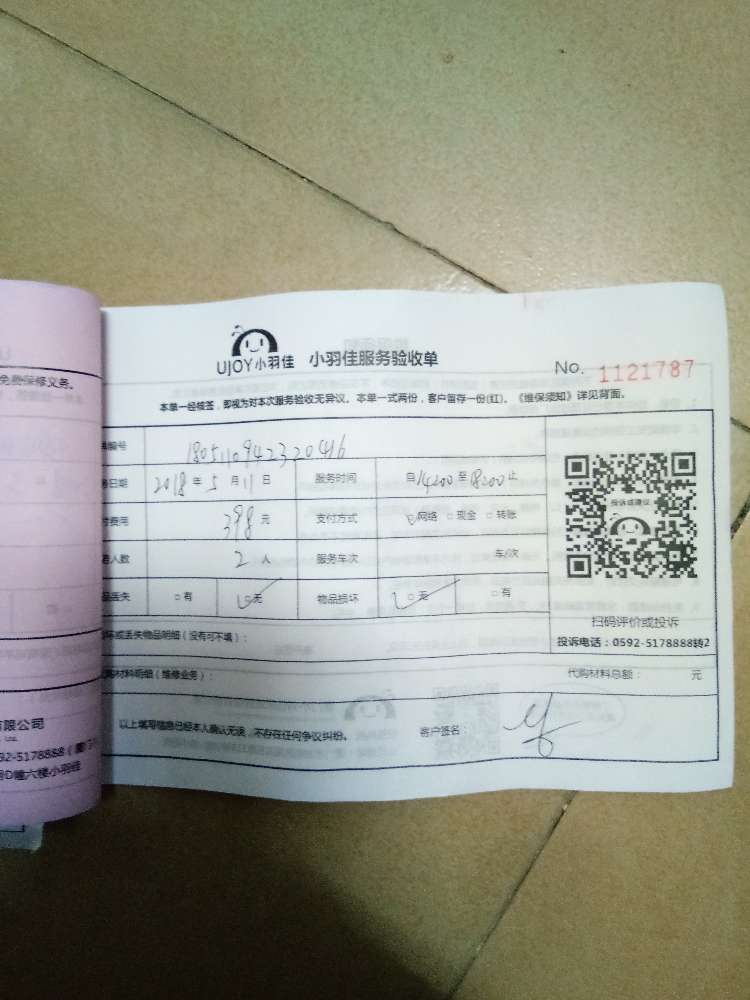 免费保修义务。
UJOY小羽佳 小羽佳服务验收单
No. 1121787
本单一经核签，即视为对本次服务验收无异议。本单一式两份，客户留存一份(红)。《维保须知》详见背面。
编号 180511094232041б
日期 2018 年 5 月 11 日 服务时间 自 14:00 至 18:00 止
费用 398 元 支付方式 □网络 □现金 □转账
人数 2 人 服务车次 车/次
丢失 □有 □无 物品损坏 □无 □有
投诉或建议
扫码评价或投诉
投诉电话：0592-5178888转2
坏或丢失物品明细（没有可不填）：
购材料明细（维修业务）： 代购材料总额： 元
以上填写信息已经本人确认无误，不存在任何争议纠纷。 客户签名：
有限公司
92-5178888
D幢六楼小羽佳